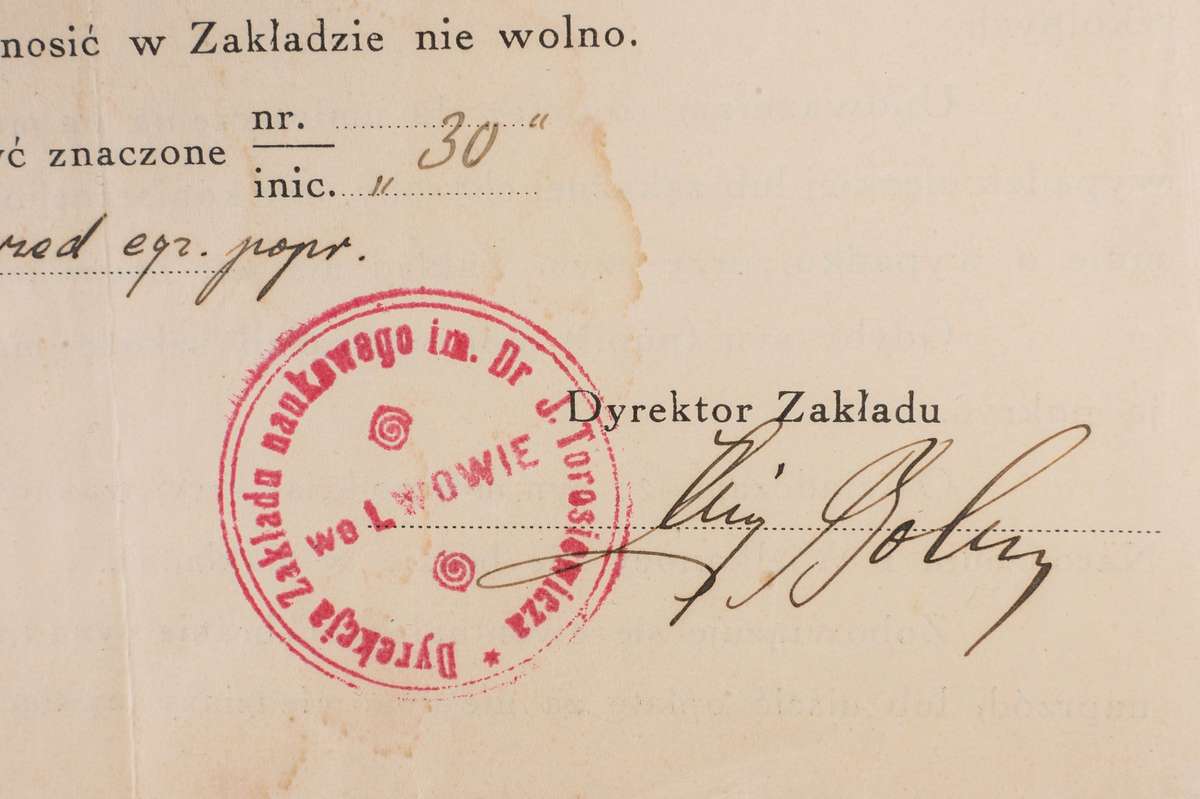 nosić w Zakładzie nie wolno.
nr. 30 "
yć znaczone
inic. "
rzed egz. popr.
Dyrekcja Zakładu naukowego im. Dr J. Torosiewicza *
WE LWOWIE
Dyrektor Zakładu